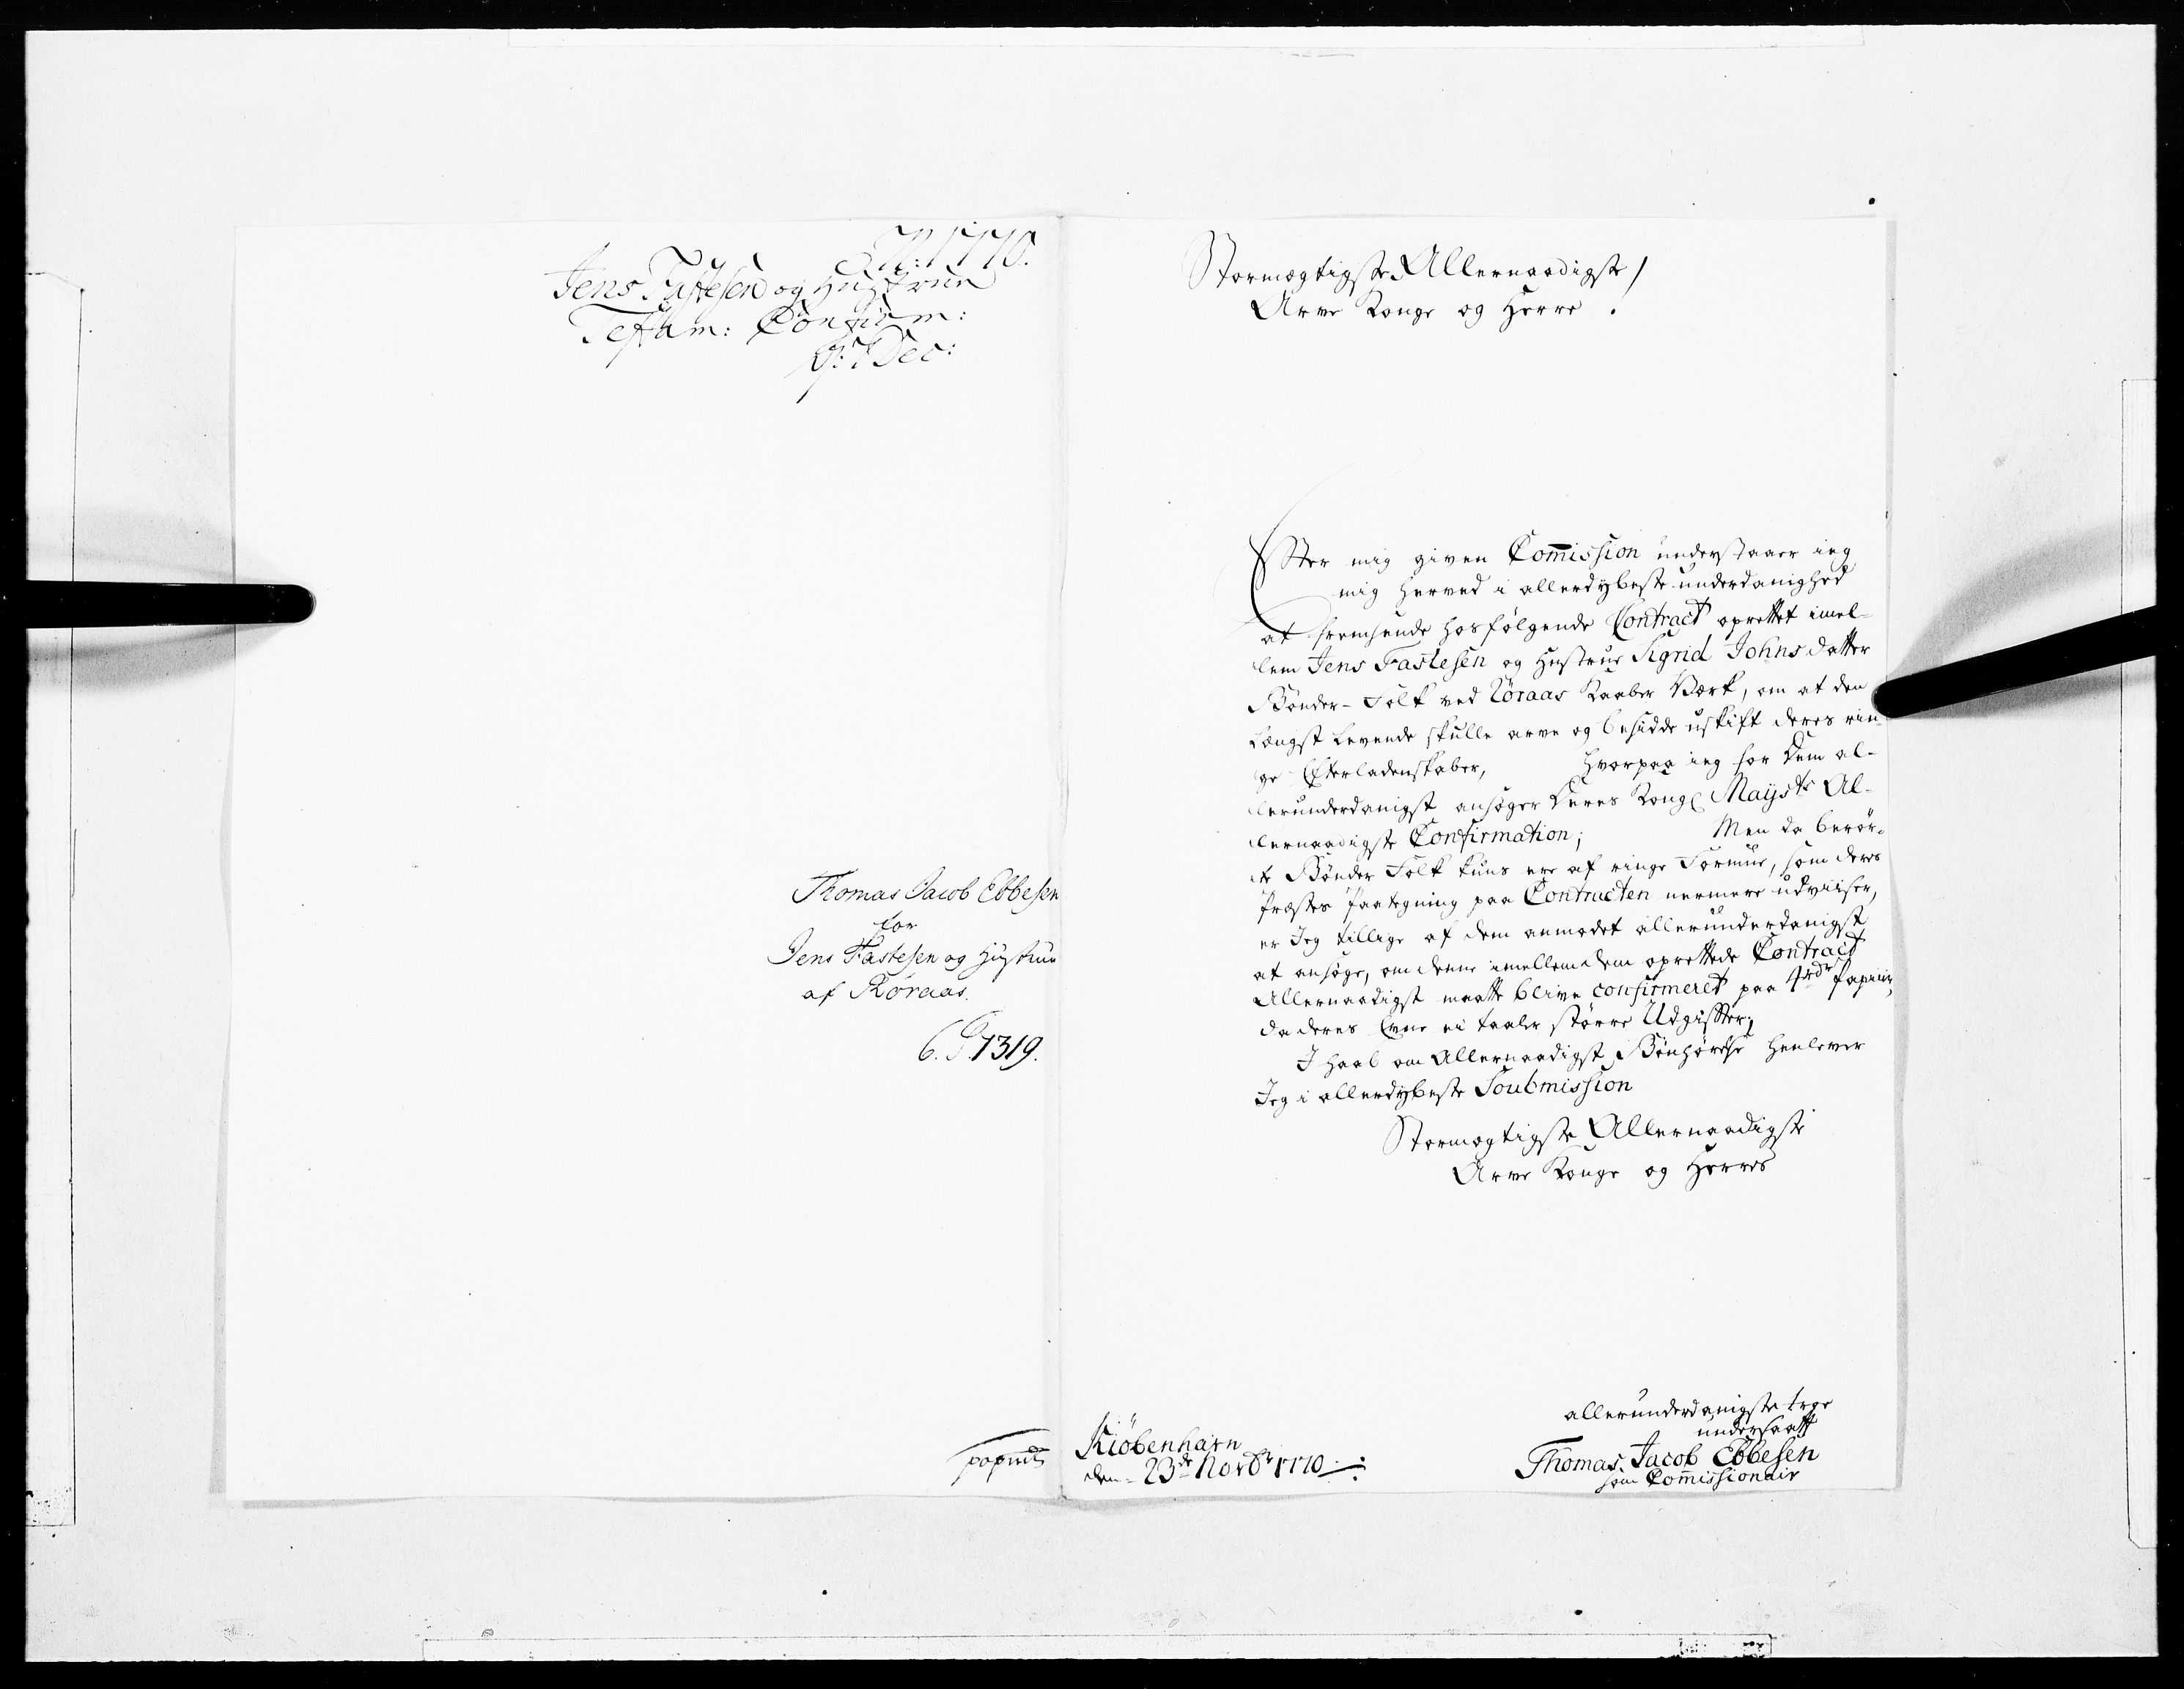 N: 1770.
Jens Fastesen og Hustrue
Testam: Confirm:
D: 7 Dec:
Thomas Jacob Ebbesen
for
Jens Fastesen og Hustrue
af Röraas.
1319.
Stormægtigste Allernaadigste /
Arve Konge og Herre .
Efter mig given Com̄ission understaaer ieg
mig herved i allerdybeste underdanighed
at fremsende hosfølgende Contract oprettet imel-
lem Jens Fastesen og Hustrue Sigrid Johnsdatter
Bönder-Folk ved Röraas Kaaber Værk, om at den
Længst Levende skulle arve og besidde uskift deres rin-
ge Efterladenskaber, Hvorpaa ieg for dem al-
lerunderdanigst ansøger Deres Kongl Mayst's Al-
lernaadigste Confirmation; Men da berör-
te Bönder Folk kuns ere af ringe Formue, som deres
Præstes Paategning paa Contracten nermere udviiser,
er Jeg tillige af dem anmodet allerunderdanigst
at ansøge, om denne imellem dem oprettede Contract
Allernaadigst maatte blive confirmeret paa 4rdr Papiir,
da deres Evne ei taaler større Udgifter;
I Haab om Allernaadigst Bönhörelse henlever
Jeg i allerdybeste Soubmission
Stormægtigste Allernaadigste
Arve Konge og Herres
Kiöbenhavn
den 23de Novbr 1770
allerunderdanigste troe
undersaatt
Thomas Jacob Ebbesen
som Com̄issionair